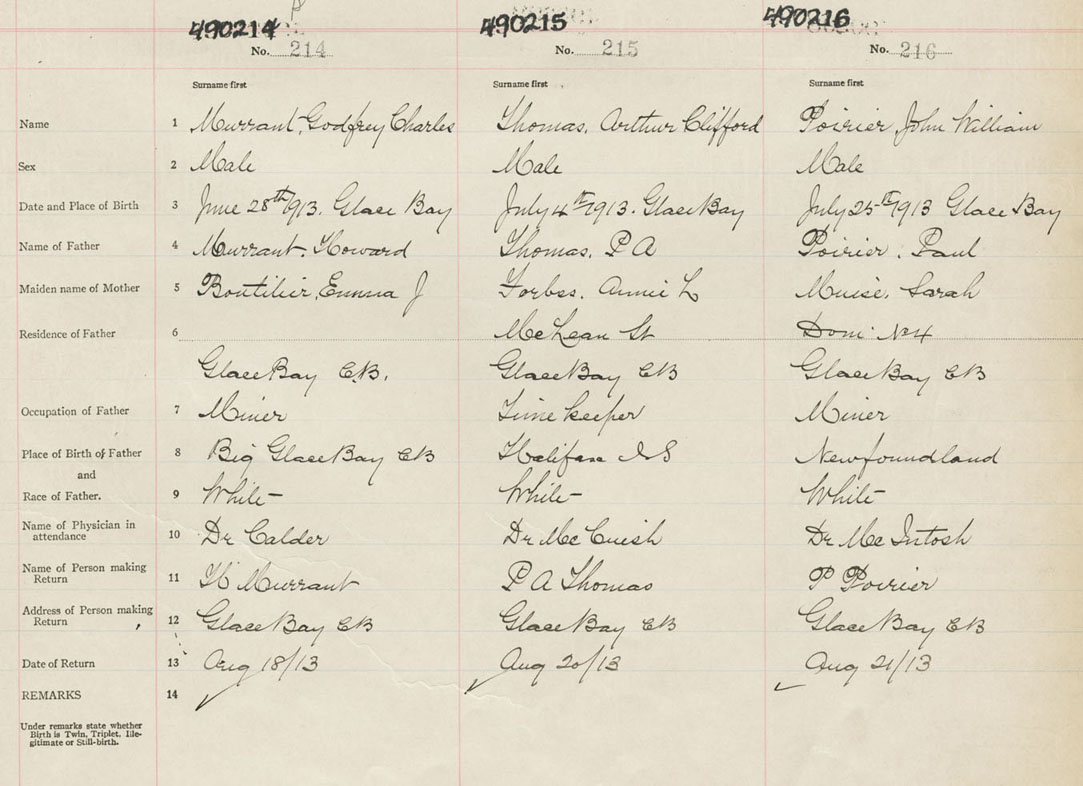 490214 490215 490216
No. 214 No. 215 No. 216
Surname first Surname first Surname first
Name 1 Murrant, Godfrey Charles Thomas, Arthur Clifford Poirier, John William
Sex 2 Male Male Male
Date and Place of Birth 3 June 28th 1913. Glace Bay July 4th 1913. Glace Bay July 25th 1913 Glace Bay
Name of Father 4 Murrant, Howard Thomas, P A Poirier, Paul
Maiden name of Mother 5 Boutilier, Emma J Forbes, Annie L Muise, Sarah
Residence of Father 6 McLean St Dom: No 4
Glace Bay C.B. Glace Bay CB Glace Bay CB
Occupation of Father 7 Miner Time keeper Miner
Place of Birth of Father 8 Big Glace Bay CB Halifax NS Newfoundland
and
Race of Father. 9 White White White
Name of Physician in
attendance 10 Dr Calder Dr McCuish Dr McIntosh
Name of Person making
Return 11 H Murrant P A Thomas P Poirier
Address of Person making
Return 12 Glace Bay CB Glace Bay CB Glace Bay CB
Date of Return 13 Aug 18/13 Aug 20/13 Aug 21/13
REMARKS 14
Under remarks state whether
Birth is Twin, Triplet, Ille-
gitimate or Still-birth.